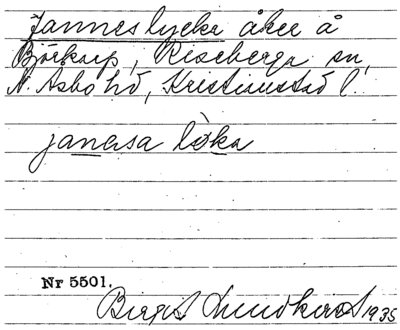 Janneslycka åker å
Björkarp, Riseberga sn,
N. Åsbo hd, Kristianstad l.
janəsa lòka
Nr 5501.
Birgit Lundkvist 1935